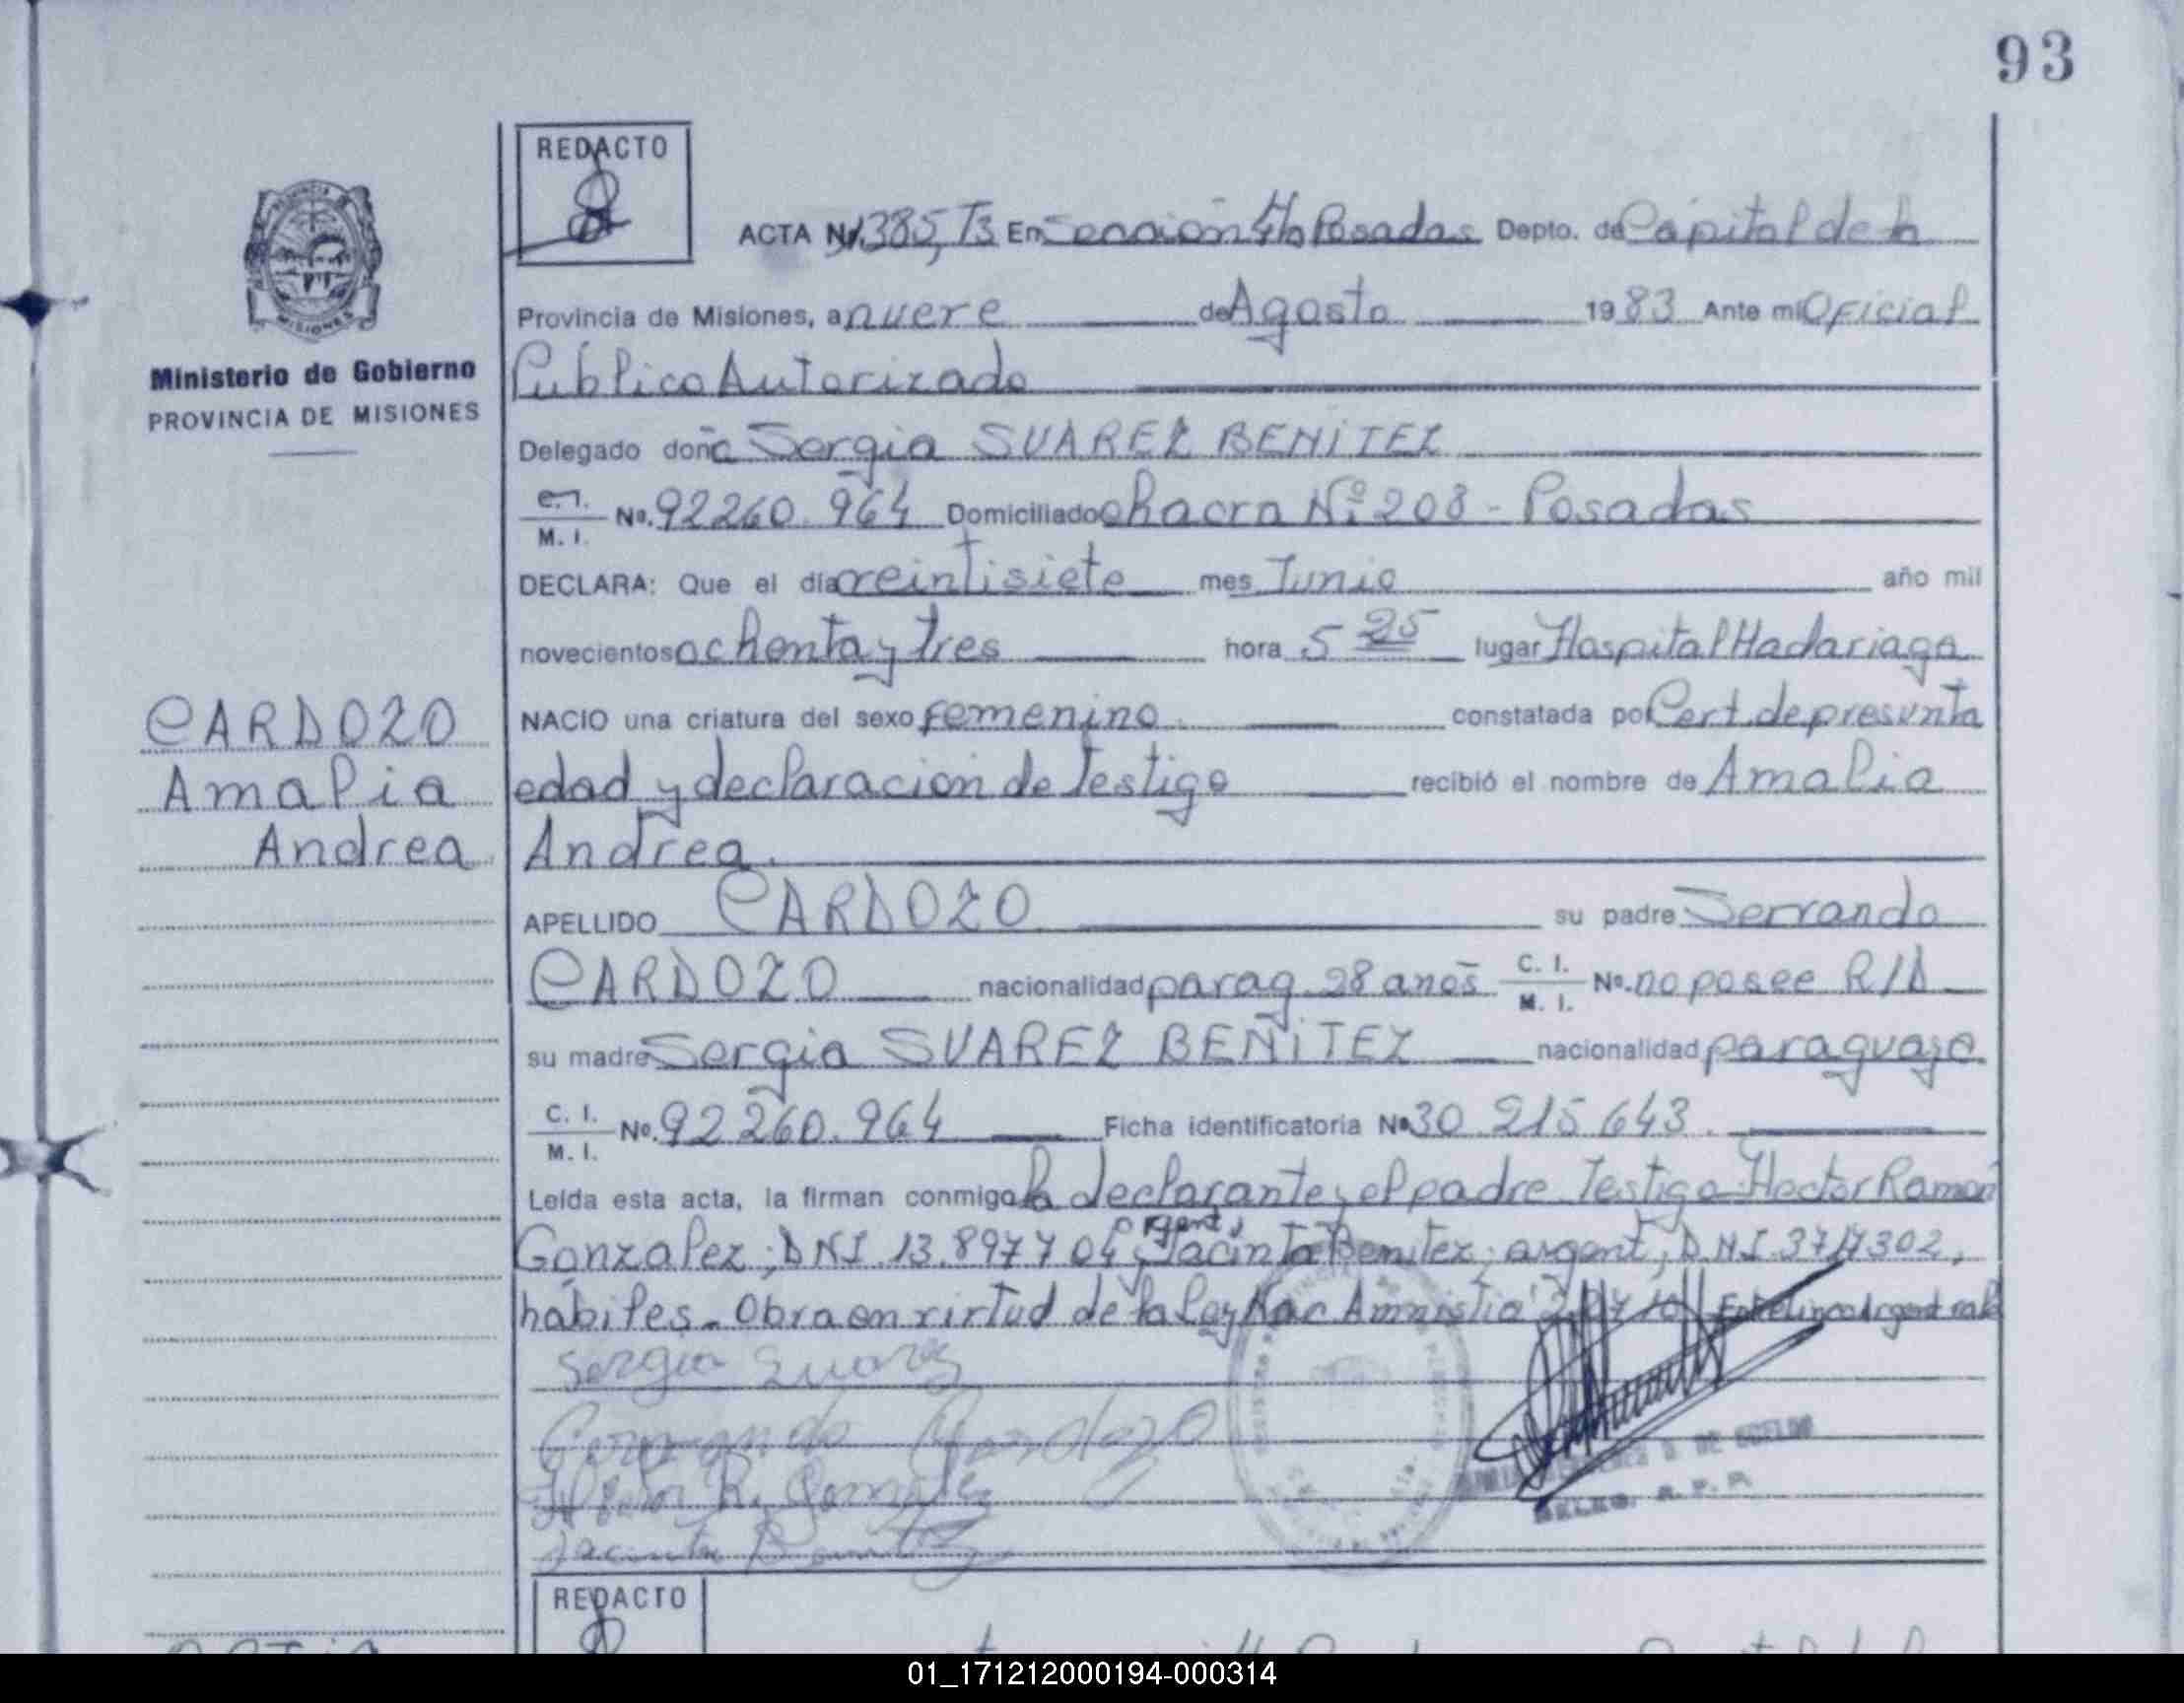 93
REDACTO
ACTA Nº 1385, T3 En Sección 4ta Posadas Depto. de Capital de la
Provincia de Misiones, a nueve de Agosto 1983 Ante mi Oficial
Ministerio de Gobierno
PROVINCIA DE MISIONES
Público Autorizado
Delegado doña Sergia SUAREZ BENITEZ
C.I. M. I. No. 92260.964 Domiciliado Chacra Nº 208 - Posadas
DECLARA: Que el día veintisiete mes Junio año mil
novecientos ochenta y tres hora 5 25 lugar Hospital Madariaga
NACIO una criatura del sexo femenino constatada por Cert. de presunta
CARDOZO
Amalia
Andrea
edad y declaracion de testigo recibió el nombre de Amalia
Andrea.
APELLIDO CARDOZO su padre Servando
CARDOZO nacionalidad parag. 28 años C. I. M. I. No. no posee R/D
su madre Sergia SUAREZ BENITEZ nacionalidad paraguaya
C. I. M. I. No. 92260.964 Ficha identificatoria No 30.215.643.
Leída esta acta, la firman conmigo la declarante y el padre Testigo Hector Ramón
Gonzalez; DNI. 13.897704 argent, Jacinta Benitez, argent, D.N.I.
hábiles. Obra en virtud de la Ley Nac Amnistia Entrelinea argent vale
Sergia Suarez
Cardozo
Hector R. Gonzalez
Jacinta Benitez
REDACTO
01_171212000194-000314